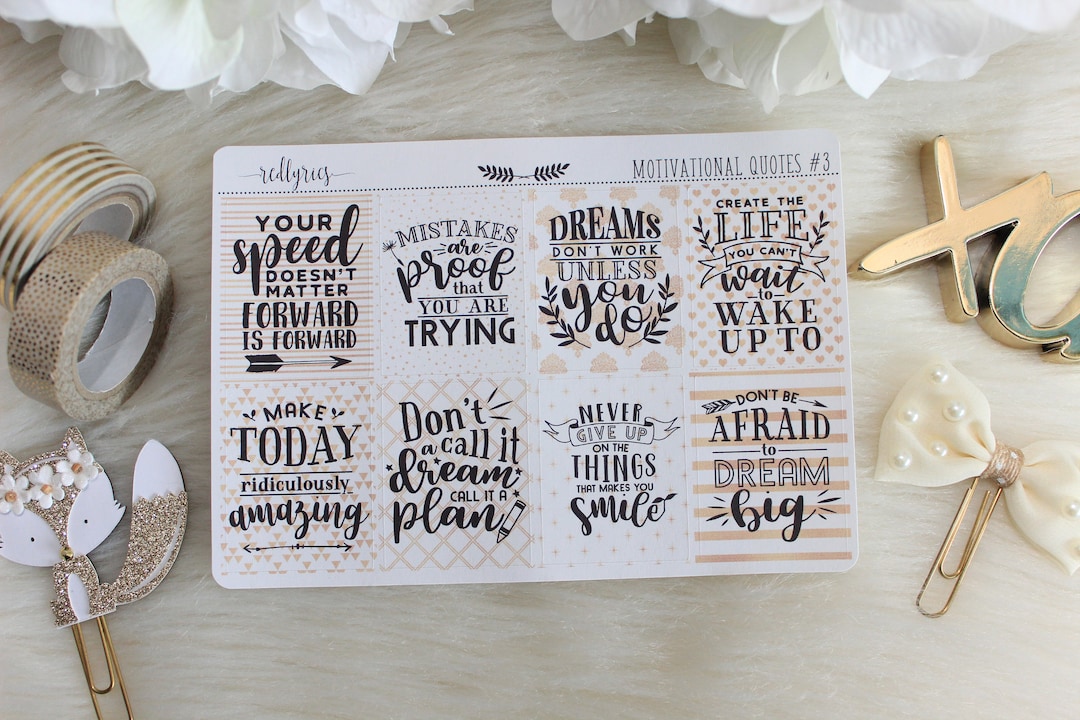 redlyrics
MOTIVATIONAL QUOTES #3
YOUR
speed
DOESN'T
MATTER
FORWARD
IS FORWARD
MISTAKES
are
proof
that
YOU ARE
TRYING
DREAMS
DON'T WORK
UNLESS
you
do
CREATE THE
LIFE
YOU CAN'T
wait
to
WAKE
UP TO
MAKE
TODAY
ridiculously
amazing
Don't
call it
a
dream
CALL IT A
plan
NEVER
GIVE UP
ON THE
THINGS
THAT MAKES YOU
smile
DON'T BE
AFRAID
to
DREAM
big
xo